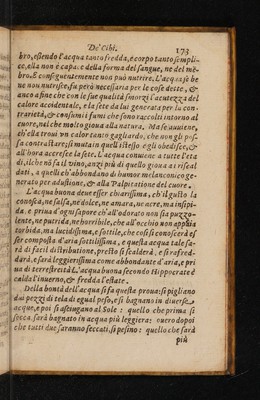 De' Cibi.
173
bro, essendo l'acqua tanto fredda, e corpo tanto sempli-
ce, ella non è capa e della forma del sangue, ne del mē-
bro. E consequentemente non può nutrire. L'acqua se be
ne non nutrisce, fu però necessaria per le cose dette, &
anco a fine che con le sue qualità smorzi l'acutezza del
calore accidentale, e la sete da lui generata per la con-
trarietà, & consumi i fumi che sono raccolti intorno al
cuore, nel che molto gioua alla natura. Ma se auuiene,
ch'ella troui vn calor tanto gagliardo, che non gli pos-
sa contrastare; si muta in quell'istesso e gli obedisce, &
all'hora accresce la sete. L'acqua conuiene a tutte l'eta
di, il che nō fa il vino, anzi più di quello gioua a i riscal
dati, a quelli ch'abbondano di humor melanconico ge-
nerato per adustione, & alla Palpitatione del cuore.
L'acqua buona deue esser chiarissima, ch'il gusto la
conosca, ne salsa, ne dolce, ne amara, ne acre, ma insipi-
da. e priua d'ogni sapore ch'all'odorato non sia puzzo-
lente, ne putrida, ne horribile, che all'occhio non appaia
torbida, ma lucidissima, e sottile, che così si conoscerà es
ser composta d'aria sottilissima, e questa acqua tale sa-
rà di facil distributione, presto si scalderà, e si rafred-
darà, e sarà leggierissima come abbondante d'aria, e pri
ua di terrestreità. L'acqua buona secondo Hippocrate è
calda l'inuerno, & fredda l'estate.
Della bontà dell'acqua si fa questa proua: si pigliano
dui pezzi di tela di egual peso, e si bagnano in diuerse
acque, e poi si asciugano al Sole: quello che prima si
secca. sarà bagnato in acqua più leggiera: ouero dopoi
che tutti due saranno seccati, si pesino: quello che sarà
più